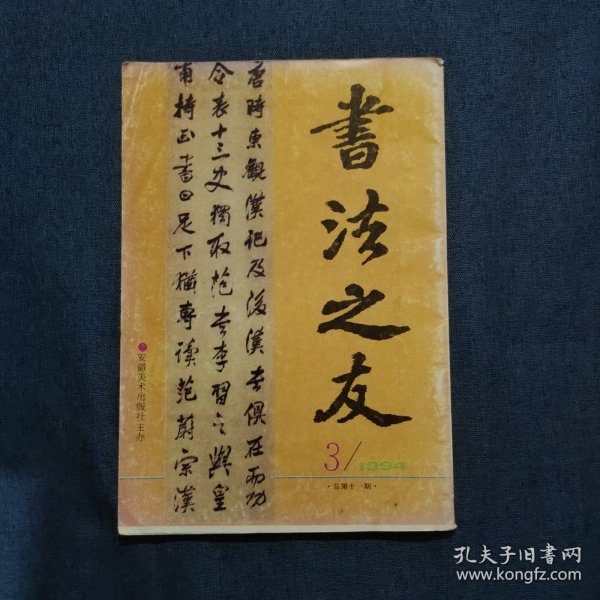 書法之友
3/1994
·总第十一期·
唐時東觀漢記及後漢書俱在而功
令表十三史獨取范書李習之與皇
甫持正書曰足下獷專讀范蔚宗漢
安徽美术出版社主办
孔夫子旧书网
www.kongfz.com